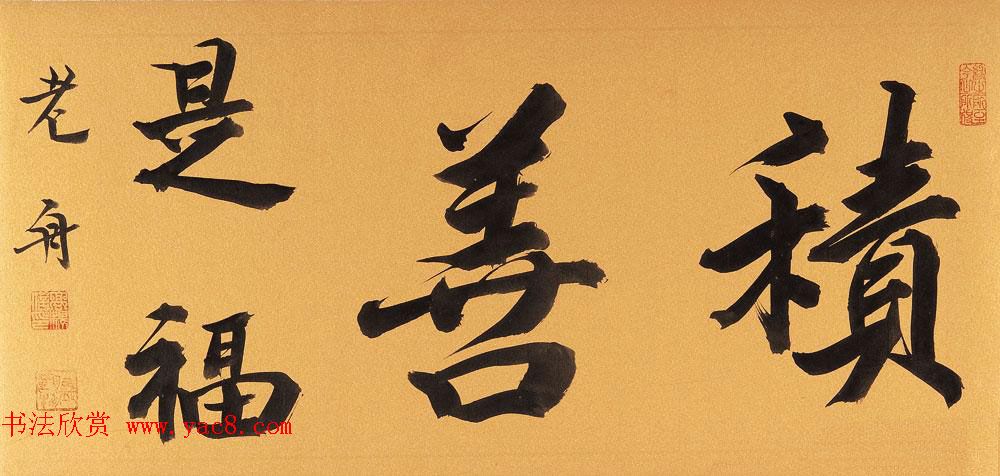 積善
是福
老舟
书法欣赏 www.yac8.com